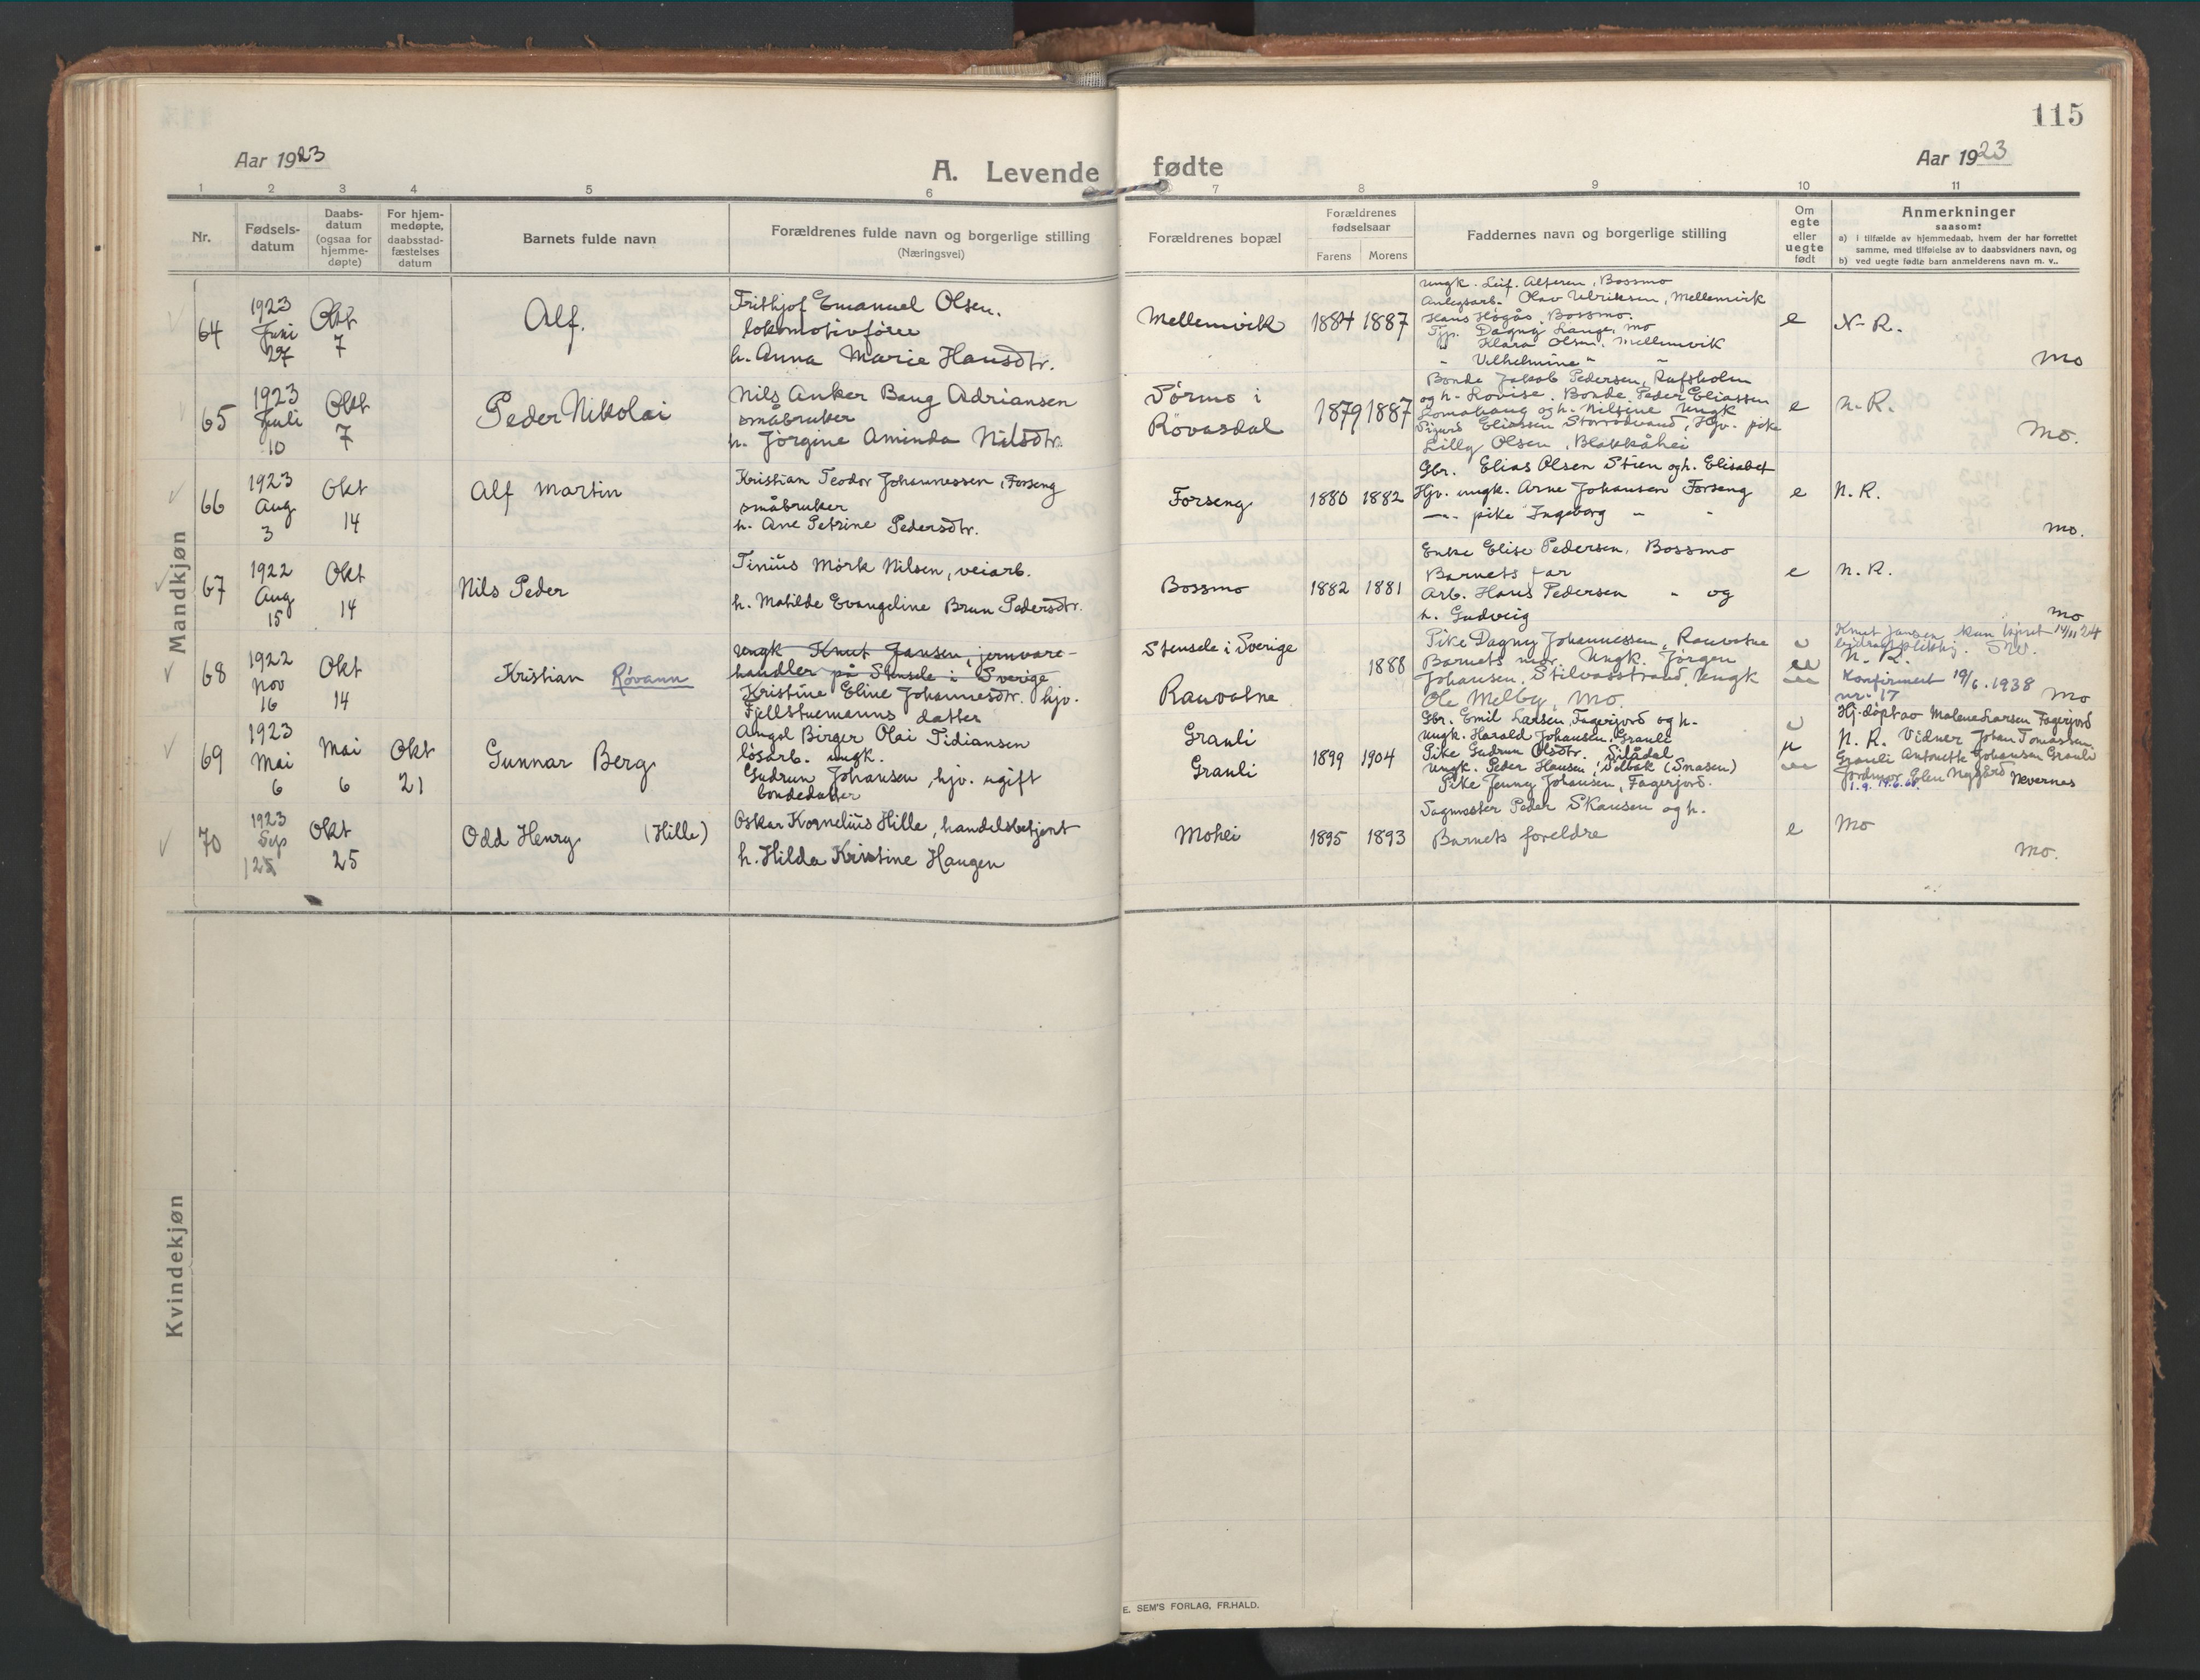 115
Aar 1923
A. Levende fødte
Aar 1923
1 2 3 4 5 6 7 8 9 10 11
Nr.
Fødsels-
datum
Daabs-
datum
(ogsaa for
hjemme-
døpte)
For hjem-
medøpte,
daabsstad-
fæstelses
datum
Barnets fulde navn
Forældrenes fulde navn og borgerlige stilling
(Næringsvei)
Forældrenes bopæl
Forældrenes
fødselsaar
Farens Morens
Faddernes navn og borgerlige stilling
Om
egte
eller
uegte
født
Anmerkninger
saasom:
a) i tilfælde av hjemmedaab, hvem der har forrettet
samme, med tilføielse av to daabsvidners navn, og
b) ved uegte fødte barn anmelderens navn m. v..
Mandkjøn
64
1923
Juni
27
Okt
7
Alf.
Frithjof Emanuel Olsen,
lokomotivfører
h. Anna Marie Hansdtr.
Mellemvik
1884 1887
Ungk. Leif Alteren, Bossmo
Anlegsarb. Olav Ulriksen, Mellemvik
Hans Høgås, Bossmo.
Tjp. Dagny Lange, Mo
" Klara Olsen, Mellemvik
" Vilhelmine " "
e
N. R.
Mo
65
1923
Juli
10
Okt
7
Peder Nikolai
Nils Anker Bang Adriansen
småbruker
h. Jørgine Aminda Nilsdtr.
Sørmo i
Røvasdal
1879 1887
Bonde Jakob Pedersen, Rufsholm
og h. Lovise. Bonde Peder Eliassen
og h. Nilsine Ungk
Sigurd Eliassen Storrødvand, Hjv. pike
Lilly Olsen, Blakkåhei
e
N. R.
Mo.
66
1923
Aug
3
Okt
14
Alf Martin
Kristian Teodor Johannessen, Forseng
småbruker
h. Ane Petrine Pedersdtr.
Forseng
1880 1882
Gbr. Elias Olsen Stien og h. Elisabet
Hjv. ungk. Arne Johansen Forseng
–"– pike Ingeborg " "
e
N. R.
Mo.
67
1922
Aug
15
Okt
14
Nils Peder
Tinius Mørk Nilsen, veiarb.
h. Matilde Evangeline Brun Pedersdtr.
Bossmo
1882 1881
Enke Elise Pedersen, Bossmo
Barnets far
Arb. Hans Pedersen " og
h. Gudveig
e
N. R.
Mo
68
1922
Nov
16
Okt
14
Kristian Røvann
Ungk Knut Jansen, jernvare-
handler på Stensele i Sverige
Kristine Eline Johannesdtr. hjv.
Fjellstuemanns datter
Stensele i Sverige
Rauvatne
1888
Pike Dagny Johannessen, Rauvatne
Barnets mor. Ungk. Jørgen
Johansen, Stilvasstrand, Ungk
Ole Melby, Mo.
Knut Jansen kun 14/11 24
N. R.
Konfirmert 19/6. 1938
nr. 17
Mo
69
1923
Mai
6
Mai
6
Okt
21
Gunnar Berg
Angel Birger Olai Tidiansen
løsarb. ungk.
Gudrun Johansen, hjv. ugift
bondedatter
Grauli
Grauli
1899 1904
Gbr. Emil Larsen, Fagerjord og h.
Ungk. Harald Johansen, Grauli
Pike Gudrun Olsdtr. Silådal
Ungk. Peder Hansen, Solbak (Snasen)
Pike Jenny Johansen, Fagerjord.
Hj. døpt av Malene Larsen Fagerjord
N. R. Vidner Johan Tomassen
Grauli Antonette Johansen Grauli
Jordmor Elen Nygård Nevernes
70
1923
Sep
Okt
25
Odd Henry (Hille)
Oskar Kornelius Hille, handelsbetjent
h. Hilda Kristine Haugen
Mohei
1895 1893
Sagmester Peder Skansen og h.
Barnets foreldre
e
Mo
Mo.
Kvindekjøn
E. SEM'S FORLAG, FR.HALD.